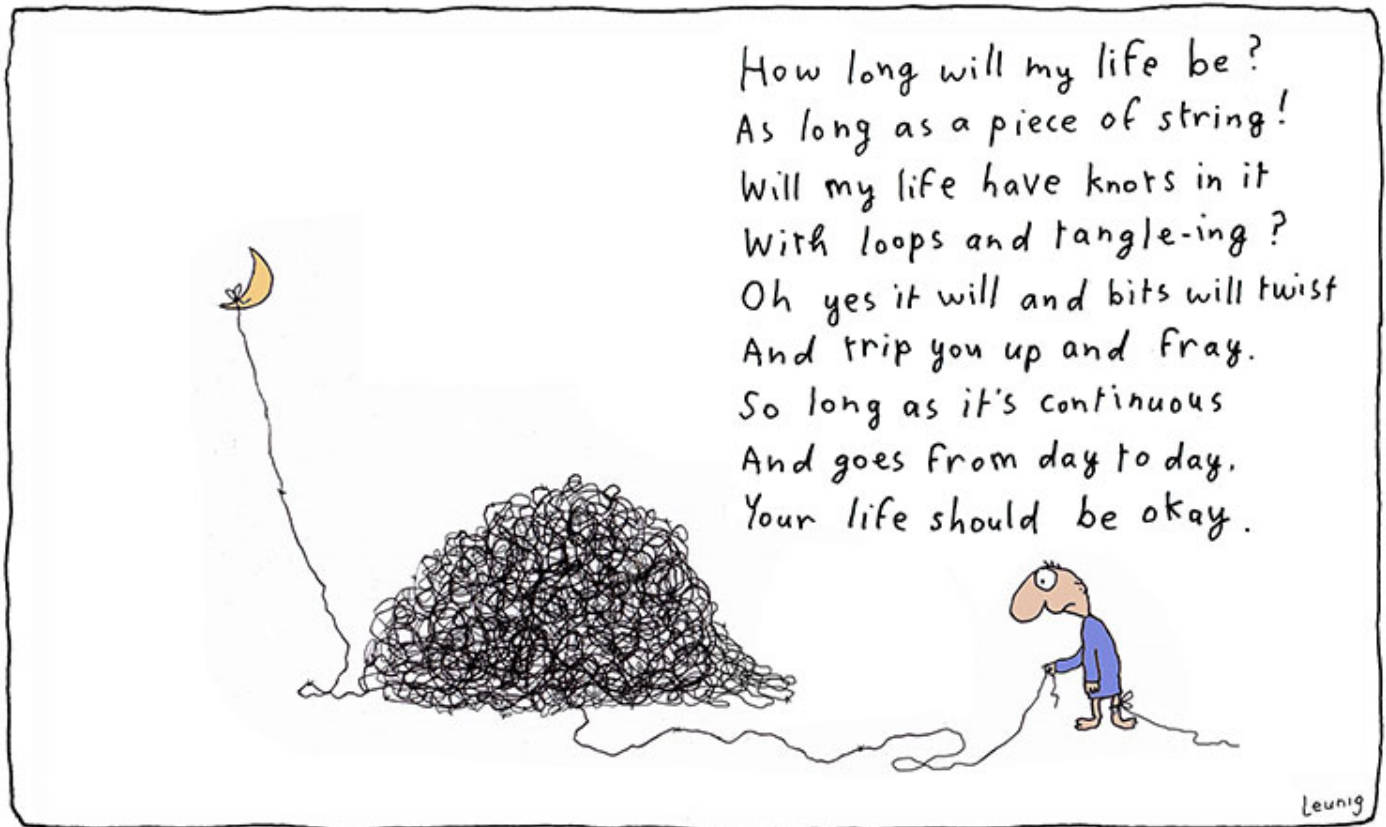 How long will my life be?
As long as a piece of string!
Will my life have knots in it
With loops and tangle-ing?
Oh yes it will and bits will twist
And trip you up and fray.
So long as it's continuous
And goes from day to day,
Your life should be okay.
Leunig